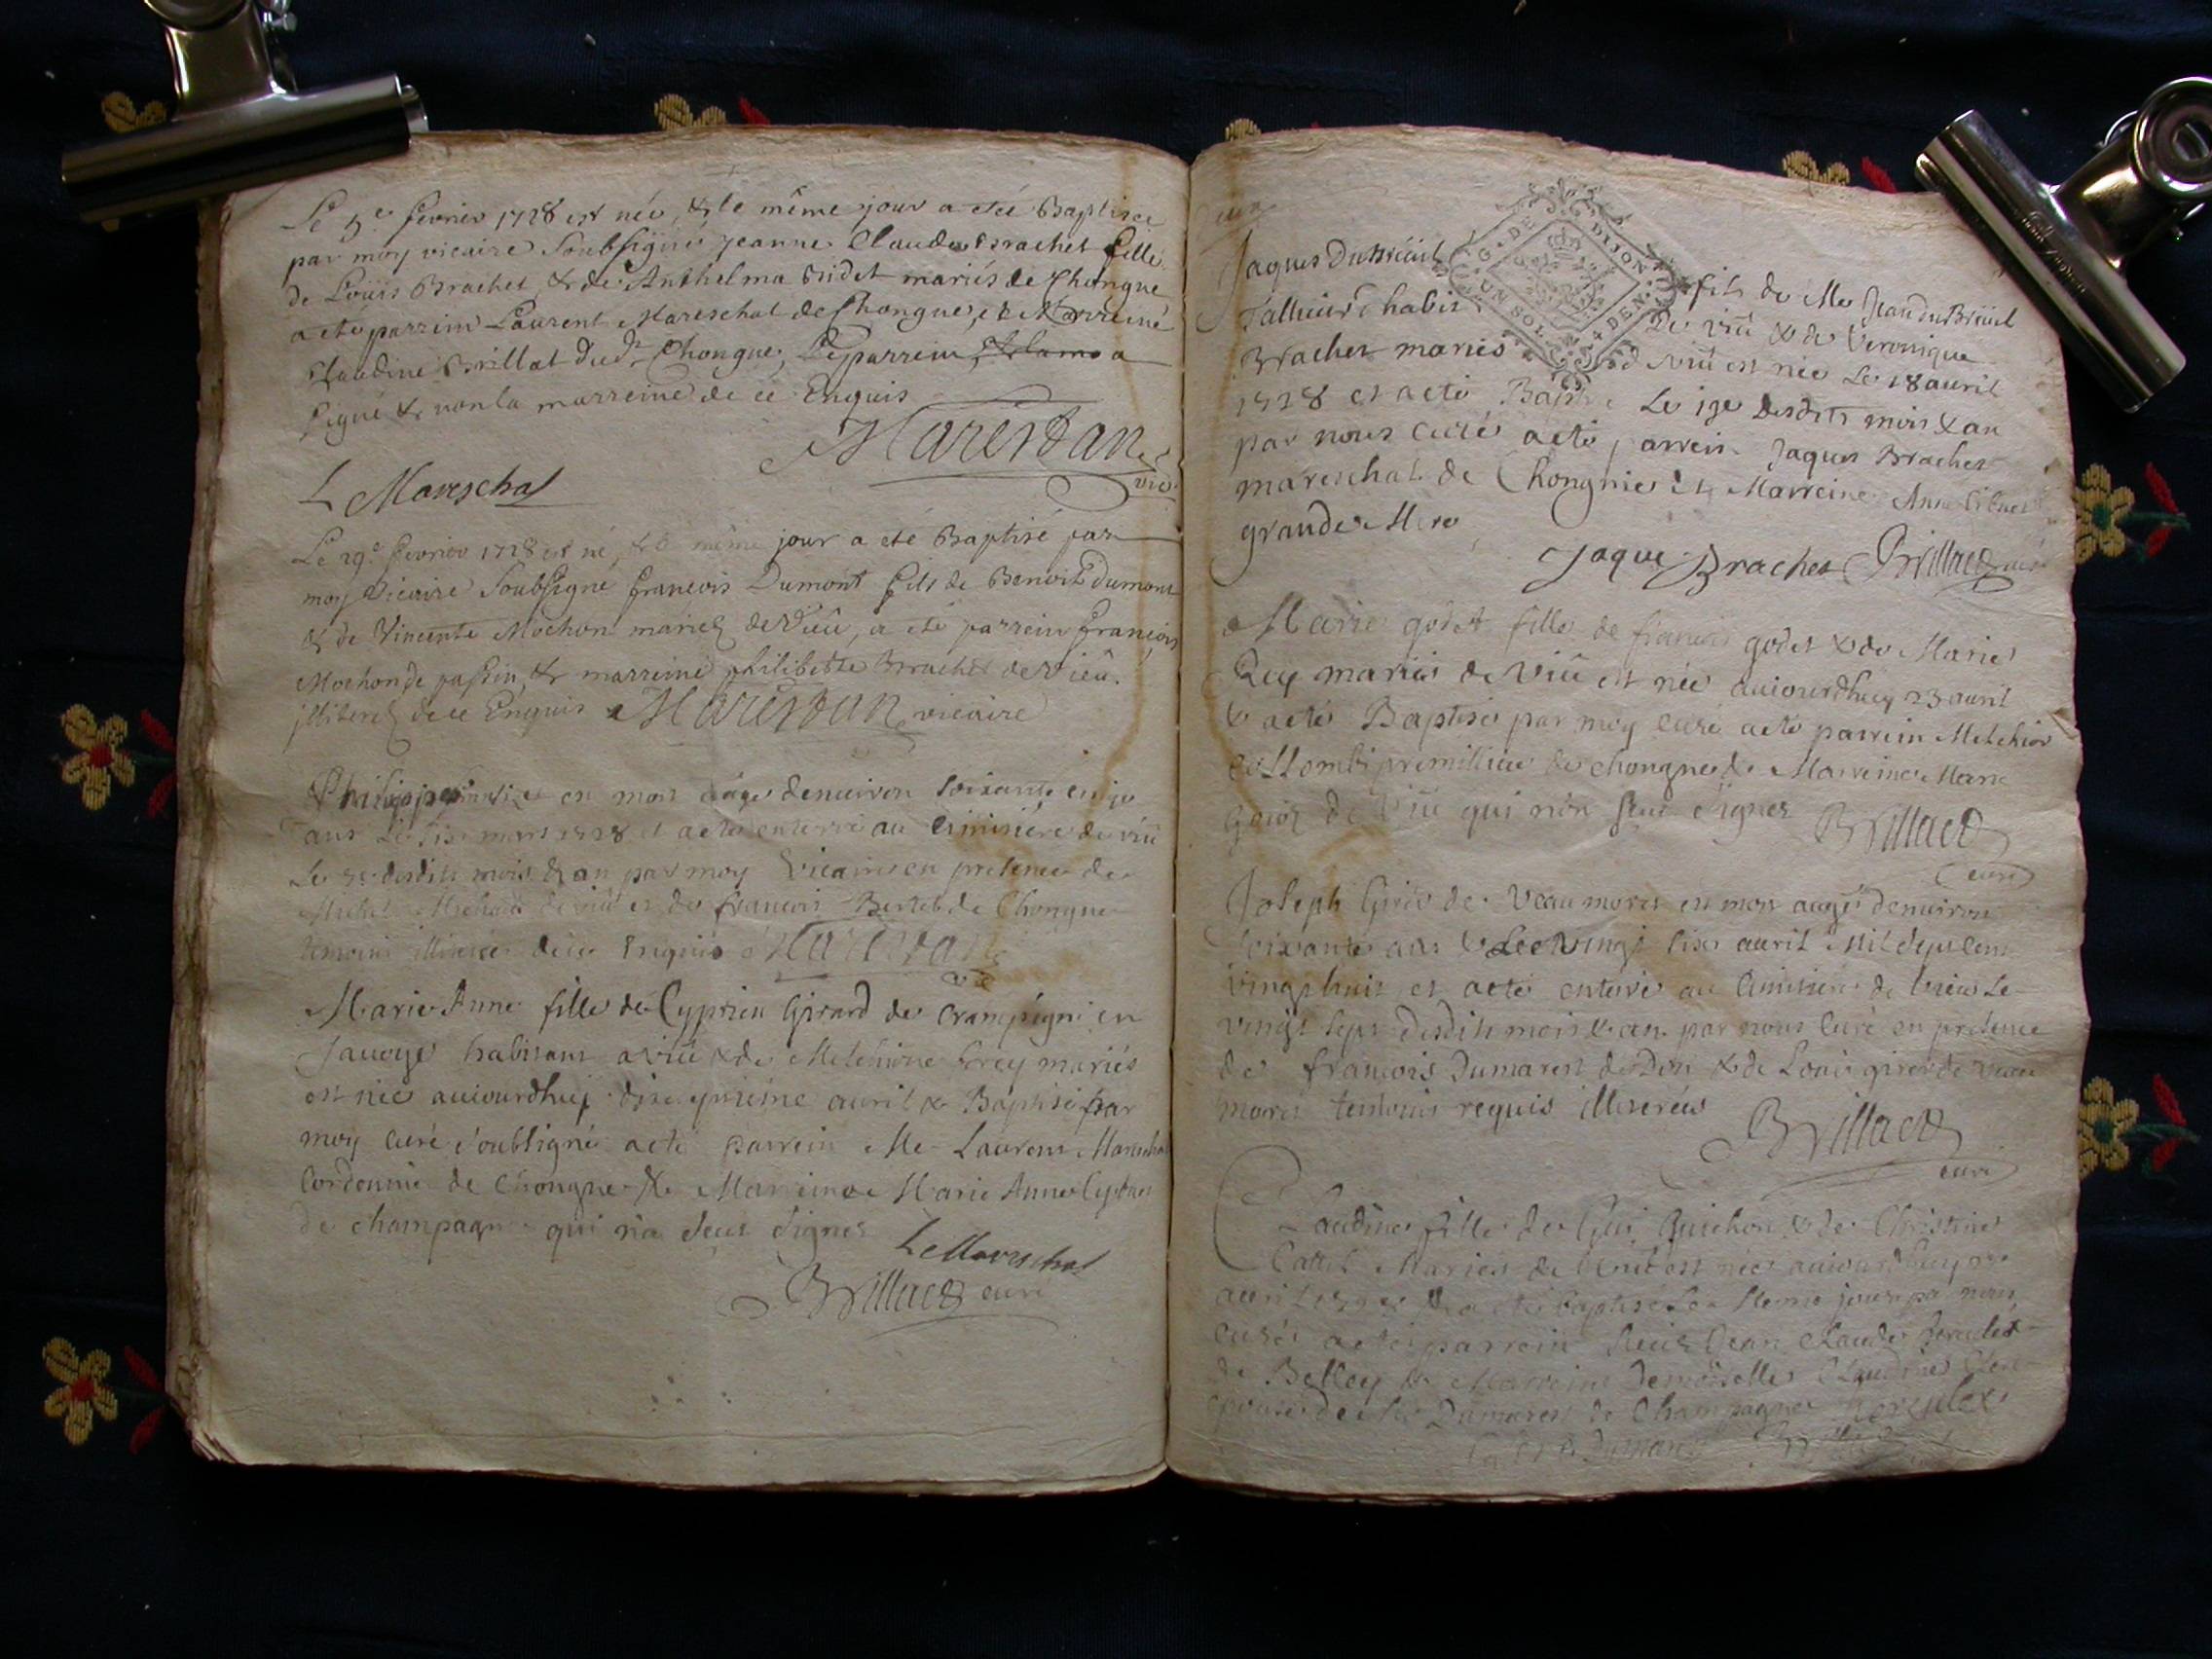 Le 5e fevrier 1728 est née, & le même jour a eté Baptisée
par moy vicaire Soubsigné Jeanne Claude Brachet fille
de Loüis Brachet, & de Anthelma mariés de Chongne
a eté parrein Laurent Mareschal de Chongne, et Marreine
Claudine Brillat dud. Chongne, Le parrein, & la ma a
signé & non la marreine de ce Enquis
Marestan
vic.
L Mareschal
Le 29e fevrier 1728 est né, & le même jour a eté Baptisé par
moy Vicaire Soubsigné françois Dumont fils de Benoit Dumont
& de Vincente Mochon mariez de Vieû, a eté parrein françois
Mochon de passin, & marreine philiberte Brachet de Vieû.
illiterez de ce Enquis Marestan vicaire
Philippe en mort âgé denuiron soixante
ans Le six mars 1728 et a eté enterré au Cimitiére de viû
Le desdits mois & an par moy Vicaire en presence de
Michel de viû et de francois Bertet de Chongne
temoins illiterés de ce Enquis Marestan
vic
Marie Anne fille de Cyprien Girard de Crampigni en
Savoye habitant a viû & de Melchione Frey mariés
est née auiourdhuij avril & Baptisé par
moy curé soubsigné a eté parrein Me Laurent Mareschal
Cordonnié de Chongne & Marreine Marie Anne
de champagne qui n'a sceu signer
L Mareschal
Brillat curé
Jaques DuBréüil fils de Me Jean DuBréüil
Tallieur habit De viû & de Veronique
Brachet mariés viû est née Le 18 auril
1728 et a eté Bapt Le 19e Desdits mois & an
par nous Curé a eté parrein Jaques Brachet
mareschal de Chongnie et Marreine Anne
grande Mere
Jaque Brachet Brillat curé
G. DE DIJON
UN SOL 4 DEN.
Marie godet fille de francois godet & de Marie
Rey mariés de Viû est née auiourdhuy 23 auril
& a eté Baptisé par moy Curé a eté parrein Melchior
de chongne & Marreine Marie
de Viû qui n'on sceu signer Brillat
curé
Joseph Giréd de Veaumoret est mort augé denuiron
soixante ans & Le vingt six auril Mil sept cent
vingthuit et a eté enterré au Cimitiére de Vieu Le
vingt sept desdits mois & an par nous Curé en presence
de françois Dumarest de Don & de Louis girer de veau
moret temoins requis illiterées
Brillat
curé
Claudine fille de Gui Guichon & de Christine
Mariés de est née auiourdhuy
auril & a eté baptisé Le Meme jour par nous
Curé a eté parrein Sieur Jean Claude
de Belley & Marreine Demoiselle Claudine
epouse de Dumarest de Champagne